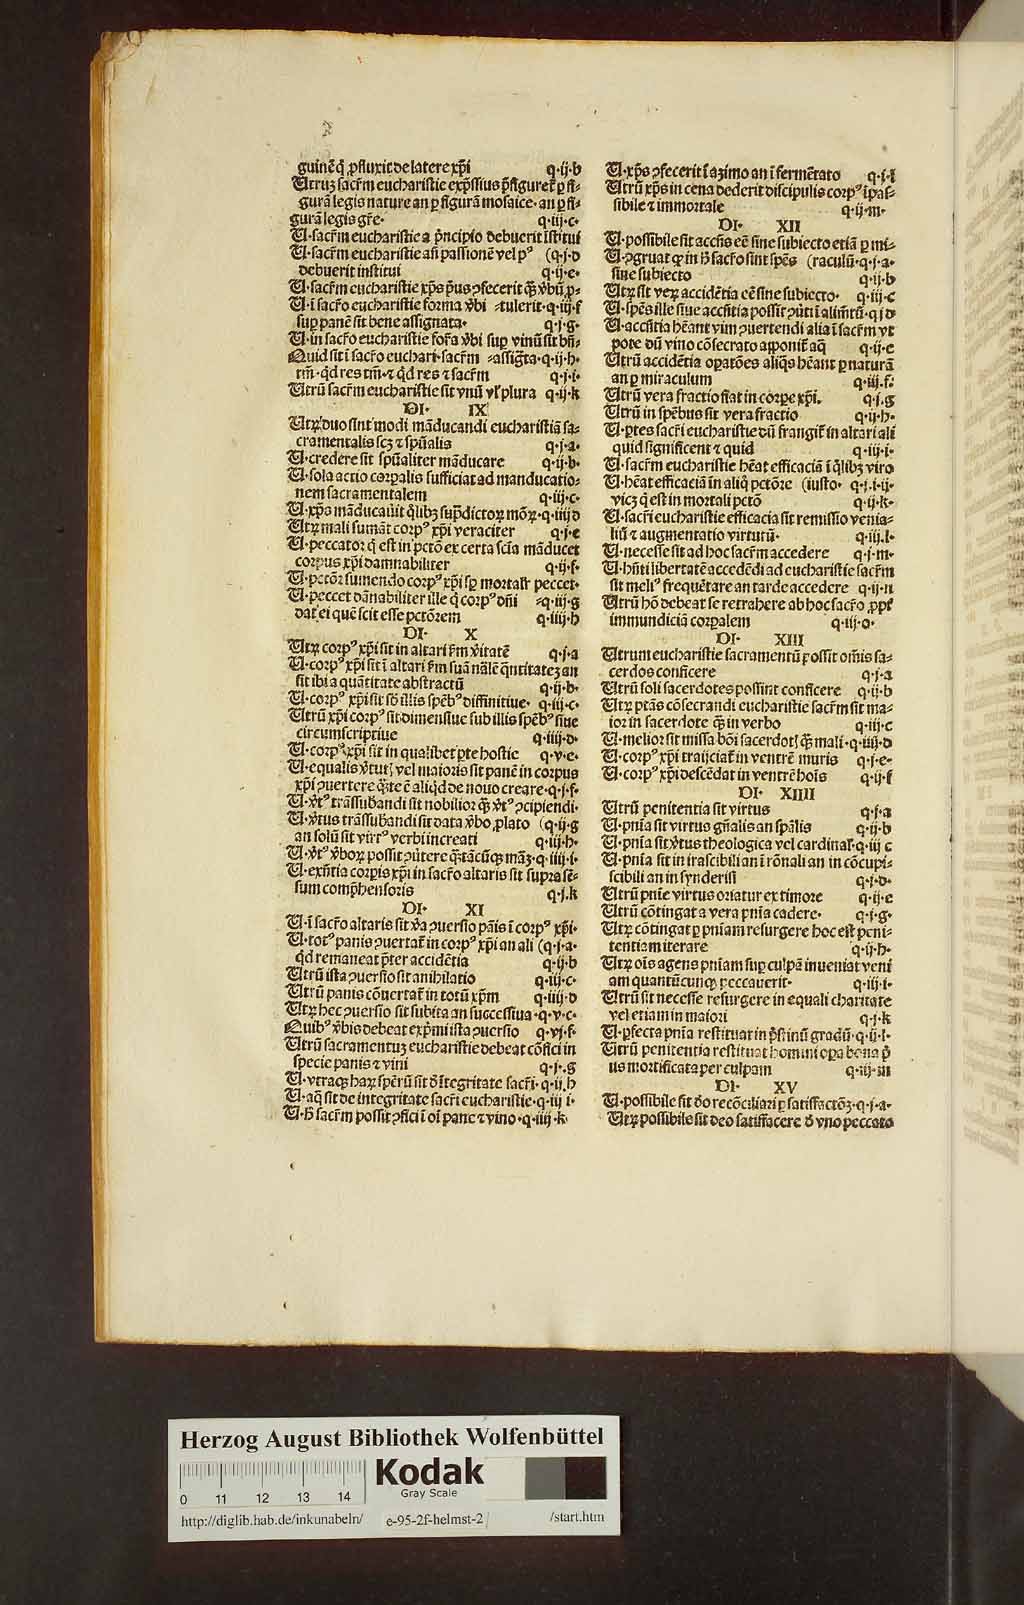 guinē q̄ ꝓfluxit de latere xp̄i q·ij·b
Utruꝫ sacr̄m eucharistie exp̄ssius p̄figureť ꝑ fi-
gurā legis nature an ꝑ figurā mosaice· an ꝑ fi-
gurā legis gr̄e· q·iij·c·
U·sacr̄m eucharistie a p̄ncipio debuerit īstitui
U·sacr̄m eucharistie an̄ passionē vel pꝰ (q·j·d
debuerit institui q·ij·e·
U·sacr̄m eucharistie xp̄s pͥus ꝯfecerit q̄ꝫ v̄bū ꝓ-
U·ī sacr̄o eucharistie forma v̄bi -tulerit·q·iij·f
sup panē sit bene assignata· q·j·g·
U·in sacr̄o eucharistie for̄a v̄bi sup vinū sit bn̄-
Quid sit ī sacr̄o euchari·sacr̄m -assigͣta·q·ij·h·
tm̄·qd res tm̄·⁊ qd res ⁊ sacr̄m q·j·i·
Utrū sacr̄m eucharistie sit vnū vl̓ plura q·ij·k
DI· IX
Utrꝝ duo sint modi māducandi eucharistiā sa-
cramentalis scꝫ ⁊ spūalis q·j·a·
U·credere sit spūaliter māducare q·ij·b·
U·sola actio corꝑalis sufficiat ad manducatio-
nem sacramentalem q·iij·c·
U·xp̄s māducauit qͥlibꝫ supͣdictoꝝ moꝝ·q·iiij d
Utrꝝ mali sumāt corpꝰ xp̄i veraciter q·j·e
U·peccator q̄ est in pctō ex certa sciā māducet
corpus xp̄i damnabiliter q·ij·f·
U·pctōr sumendo corpꝰ xp̄i sp̄ mortalr̄ peccet·
U·peccet dānabiliter ille q̄ corpꝰ dn̄i -q·iij·g
dat ei quē scit esse pctōrem q·iiij·h
DI· X
Utrꝝ corpꝰ xp̄i sit in altari ẜm v̄itatē q·j·a
U·corpꝰ xp̄i sit ī altari ẜm suā nālē qͣntitateꝫ an
sit ibi a quātitate abstractū q·ij·b·
U·corpꝰ xp̄i sit sb̄ illis spēbꝰ diffinitiue· q·iij·c·
Utrū xp̄i corpꝰ sit dimensiue sub illis spēbꝰ siue
circumscriptiue q·iiij·d·
U·corpꝰ xp̄i sit in qualibet ꝑte hostie q·v·e·
U·equalis v̄tutꝭ vel maioris sit panē in corpus
xp̄i ꝯuertere qͣꝫ te ē aliqͥd de nouo creare·q·j·f·
U·v̄tꝰ trāssubandi sit nobilior q̄ꝫ v̄tꝰ ꝯcipiendi·
U·v̄tus trāssubandi sit data v̄bo ꝓlato (q·ij·g
an solū sit virtꝰ verbi increati q·iij·h·
U·v̄tꝰ v̄boꝝ possit ꝯuītere qͣꝫtācūqꝫ māꝫ·q·iiij·i·
U·exn̄tia corꝑis xp̄i in sacr̄o altaris sit supra sē-
sum comp̄hensoris q·j·k
DI· XI
U·ī sacr̄o altaris sit v̄a ꝯuersio pāis ī corpꝰ xp̄i·
U·totꝰ panis ꝯuertat̄ in corpꝰ xp̄i an ali (q·j·a·
qd remaneat p̄ter accidētia q·ij·b
Utrū ista ꝯuersio sit anihilatio q·iij·c·
Utrū panis cōuertat̄ in totū xp̄m q·iiij·d
Utrꝝ hec ꝯuersio sit subita an successiua·q·v·c·
Quibꝰ v̄bis debeat exp̄mi ista ꝯuersio q·vj·f·
Utrū sacramentuꝫ eucharistie debeat cōfici in
specie panis ⁊ vini q·j·g
U·vtraqꝫ haꝝ spērū sit d̄ ītegritate sacr̄i·q·ij·h
U·aq̄ sit de integritate sacr̄i eucharistie·q·iij i·
U·h̄ sacr̄m possit ꝯfici ī oī pane ⁊ vino·q·iiij·k·
U·xp̄s ꝯfecerit ī azimo an ī fermētato q·j·l
Utrū xp̄s in cena dederit discipulis corpꝰ īpas-
sibile ⁊ immortale q·ij·m·
DI· XII
U·possibile sit accn̄s eē sine subiecto etiā ꝑ mi-
U·ꝯgruat ꝙ in h̄ sacr̄o sint spēs (raculū·q·j·a·
sine subiecto q·ij·b
Utrꝝ sit veꝝ accidētia eē sine subiecto· q·iij·c
U·spēs ille siue accn̄tia possit ꝯūti ī alimt̄ū·q·j d
U·accn̄tia hēant vim ꝯuertendi alia ī sacr̄m vt
pote dū vino cōsecrato apponit̄ aq̄ q·ij·e
Utrū accidētia oꝑatōes aliqͣs hēant ꝑ naturā
an ꝑ miraculum q·iij·f·
Utrū vera fractio fiat in corꝑe xp̄i· q·j·g
Utrū in spēbus sit vera fractio q·ij·h·
U·ꝑtes sacr̄i eucharistie dū frangit̄ in altari ali
quid significent ⁊ quid q·iij·i·
U·sacr̄m eucharistie hēat efficaciā ī qͥlibꝫ viro
U·hēat efficaciā in aliq̄ pctōre (iusto· q·j·i·ij·
vicꝫ q̄ est in mortali pctō q·ij·k·
U·sacr̄i eucharistie efficacia sit remissio venia-
liū ⁊ augmentatio virtutū· q·iij·l·
U·necesse sit ad hoc sacr̄m accedere q·j·m·
U·hn̄ti libertatē accedēdi ad eucharistie sacr̄m
sit meliꝰ frequētare an tarde accedere q·ij·n
Utrū hō debeat se retrahere ab hoc sacr̄o ꝓpt̄
immundiciā corꝑalem q·iij·o·
DI· XIII
Utrum eucharistie sacramentū possit om̄is sa-
cerdos conficere q·j·a
Utrū soli sacerdotes possint conficere q·ij·b
Utrꝝ ptās cōsecrandi eucharistie sacr̄m sit ma-
ior in sacerdote q̄ꝫ in verbo q·iij·c
U·melior sit missa bōi sacerdotꝭ q̄ꝫ mali·q·iiij·d
U·corpꝰ xp̄i traijciat̄ in ventrē muris q·j·e·
U·corpꝰ xp̄i descēdat in ventrē hoīs q·ij·f
DI· XIIII
Utrū penitentia sit virtus q·j·a
U·pn̄ia sit virtus gn̄alis an spālis q·ij·b
U·pn̄ia sit v̄tus theologica vel cardinal̓·q·iij c
U·pn̄ia sit in irascibili an ī rōnali an in cōcupi-
scibili an in synderisi q·j·d·
Utrū pnīe virtus oriatur ex timore q·ij·e
Utrū cōtingat a vera pn̄ia cadere· q·j·g·
Utrꝝ cōtingat ꝑ pn̄iam resurgere hoc est peni-
tentiam iterare q·ij·h·
Utrꝝ oīs agens pn̄iam sup culpā inueniat veni
am quantūcunqꝫ peccauerit· q·iij·i·
Utrū sit necesse resurgere in equali charitate
vel etiam in maiori q·j·k
U·ꝑfecta pn̄ia restituat in pͥstinū gradū·q·ij·l·
Utrū penitentia restituat homini oꝑa bona pͥ
us mortificata per culpam q·iij·m
DI· XV
U·possibile sit deo recōciliari ꝑ satisfactōꝫ·q·j·a·
Utrꝝ possibile sit deo satisfacere d̄ vno peccato
Herzog August Bibliothek Wolfenbüttel
Kodak
Gray Scale
0 11 12 13 14
http://diglib.hab.de/inkunabeln/ e-95-2f-helmst-2 /start.htm